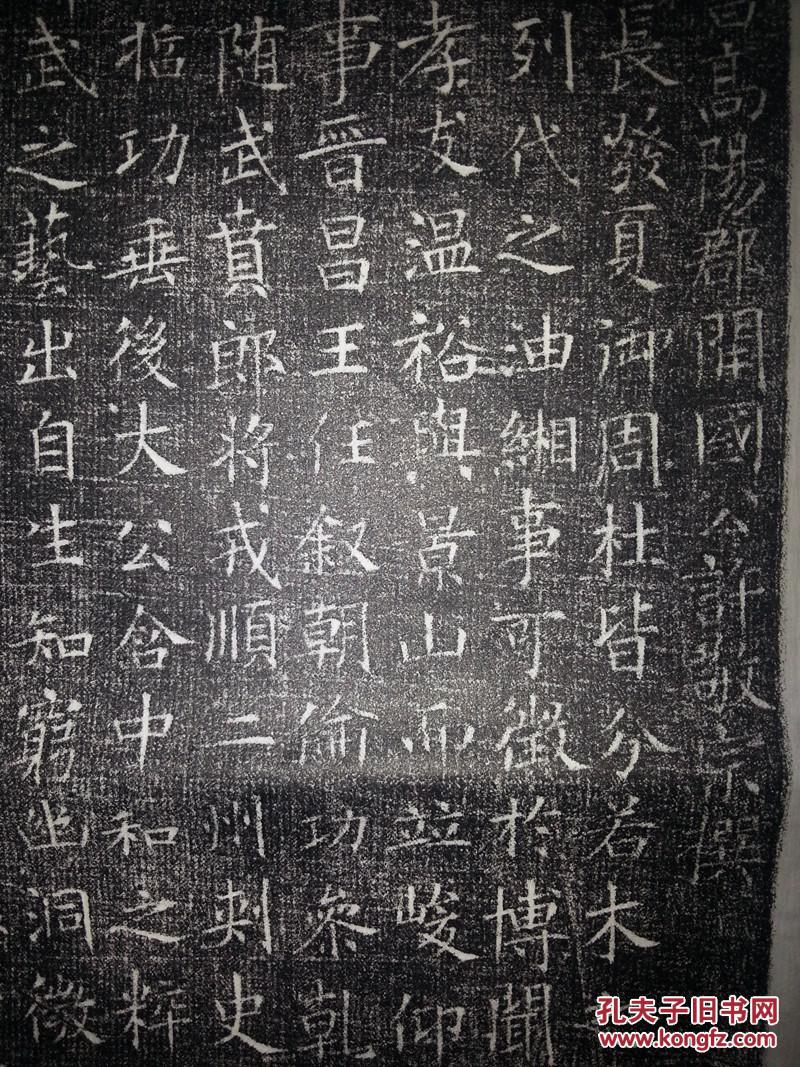 高陽郡開國公許敬宗撰
長發夏御周杜皆分若木
列代之油緗事可徵於博聞
孝友温裕與景山而竝峻仰
事晉昌王任叙朝倫功叅乹
随武賁郎將戎順二州刺史
哲功垂後大公含中和之粹
武之藝出自生知窮幽洞微
孔夫子旧书网
www.kongfz.com